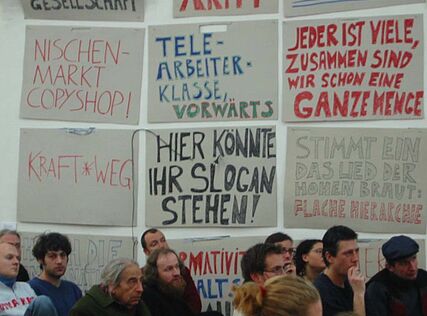 GESELLSCHAFT
NISCHEN-
MARKT
COPYSHOP!
TELE-
ARBEITER-
KLASSE,
VORWÄRTS
JEDER IST VIELE,
ZUSAMMEN SIND
WIR SCHON EINE
GANZE MENGE
KRAFT*WEG
HIER KÖNNTE
IHR SLOGAN
STEHEN!
STIMMT EIN
DAS LIED DER
HOHEN BRAUT:
FLACHE HIERARCHIE
DIE